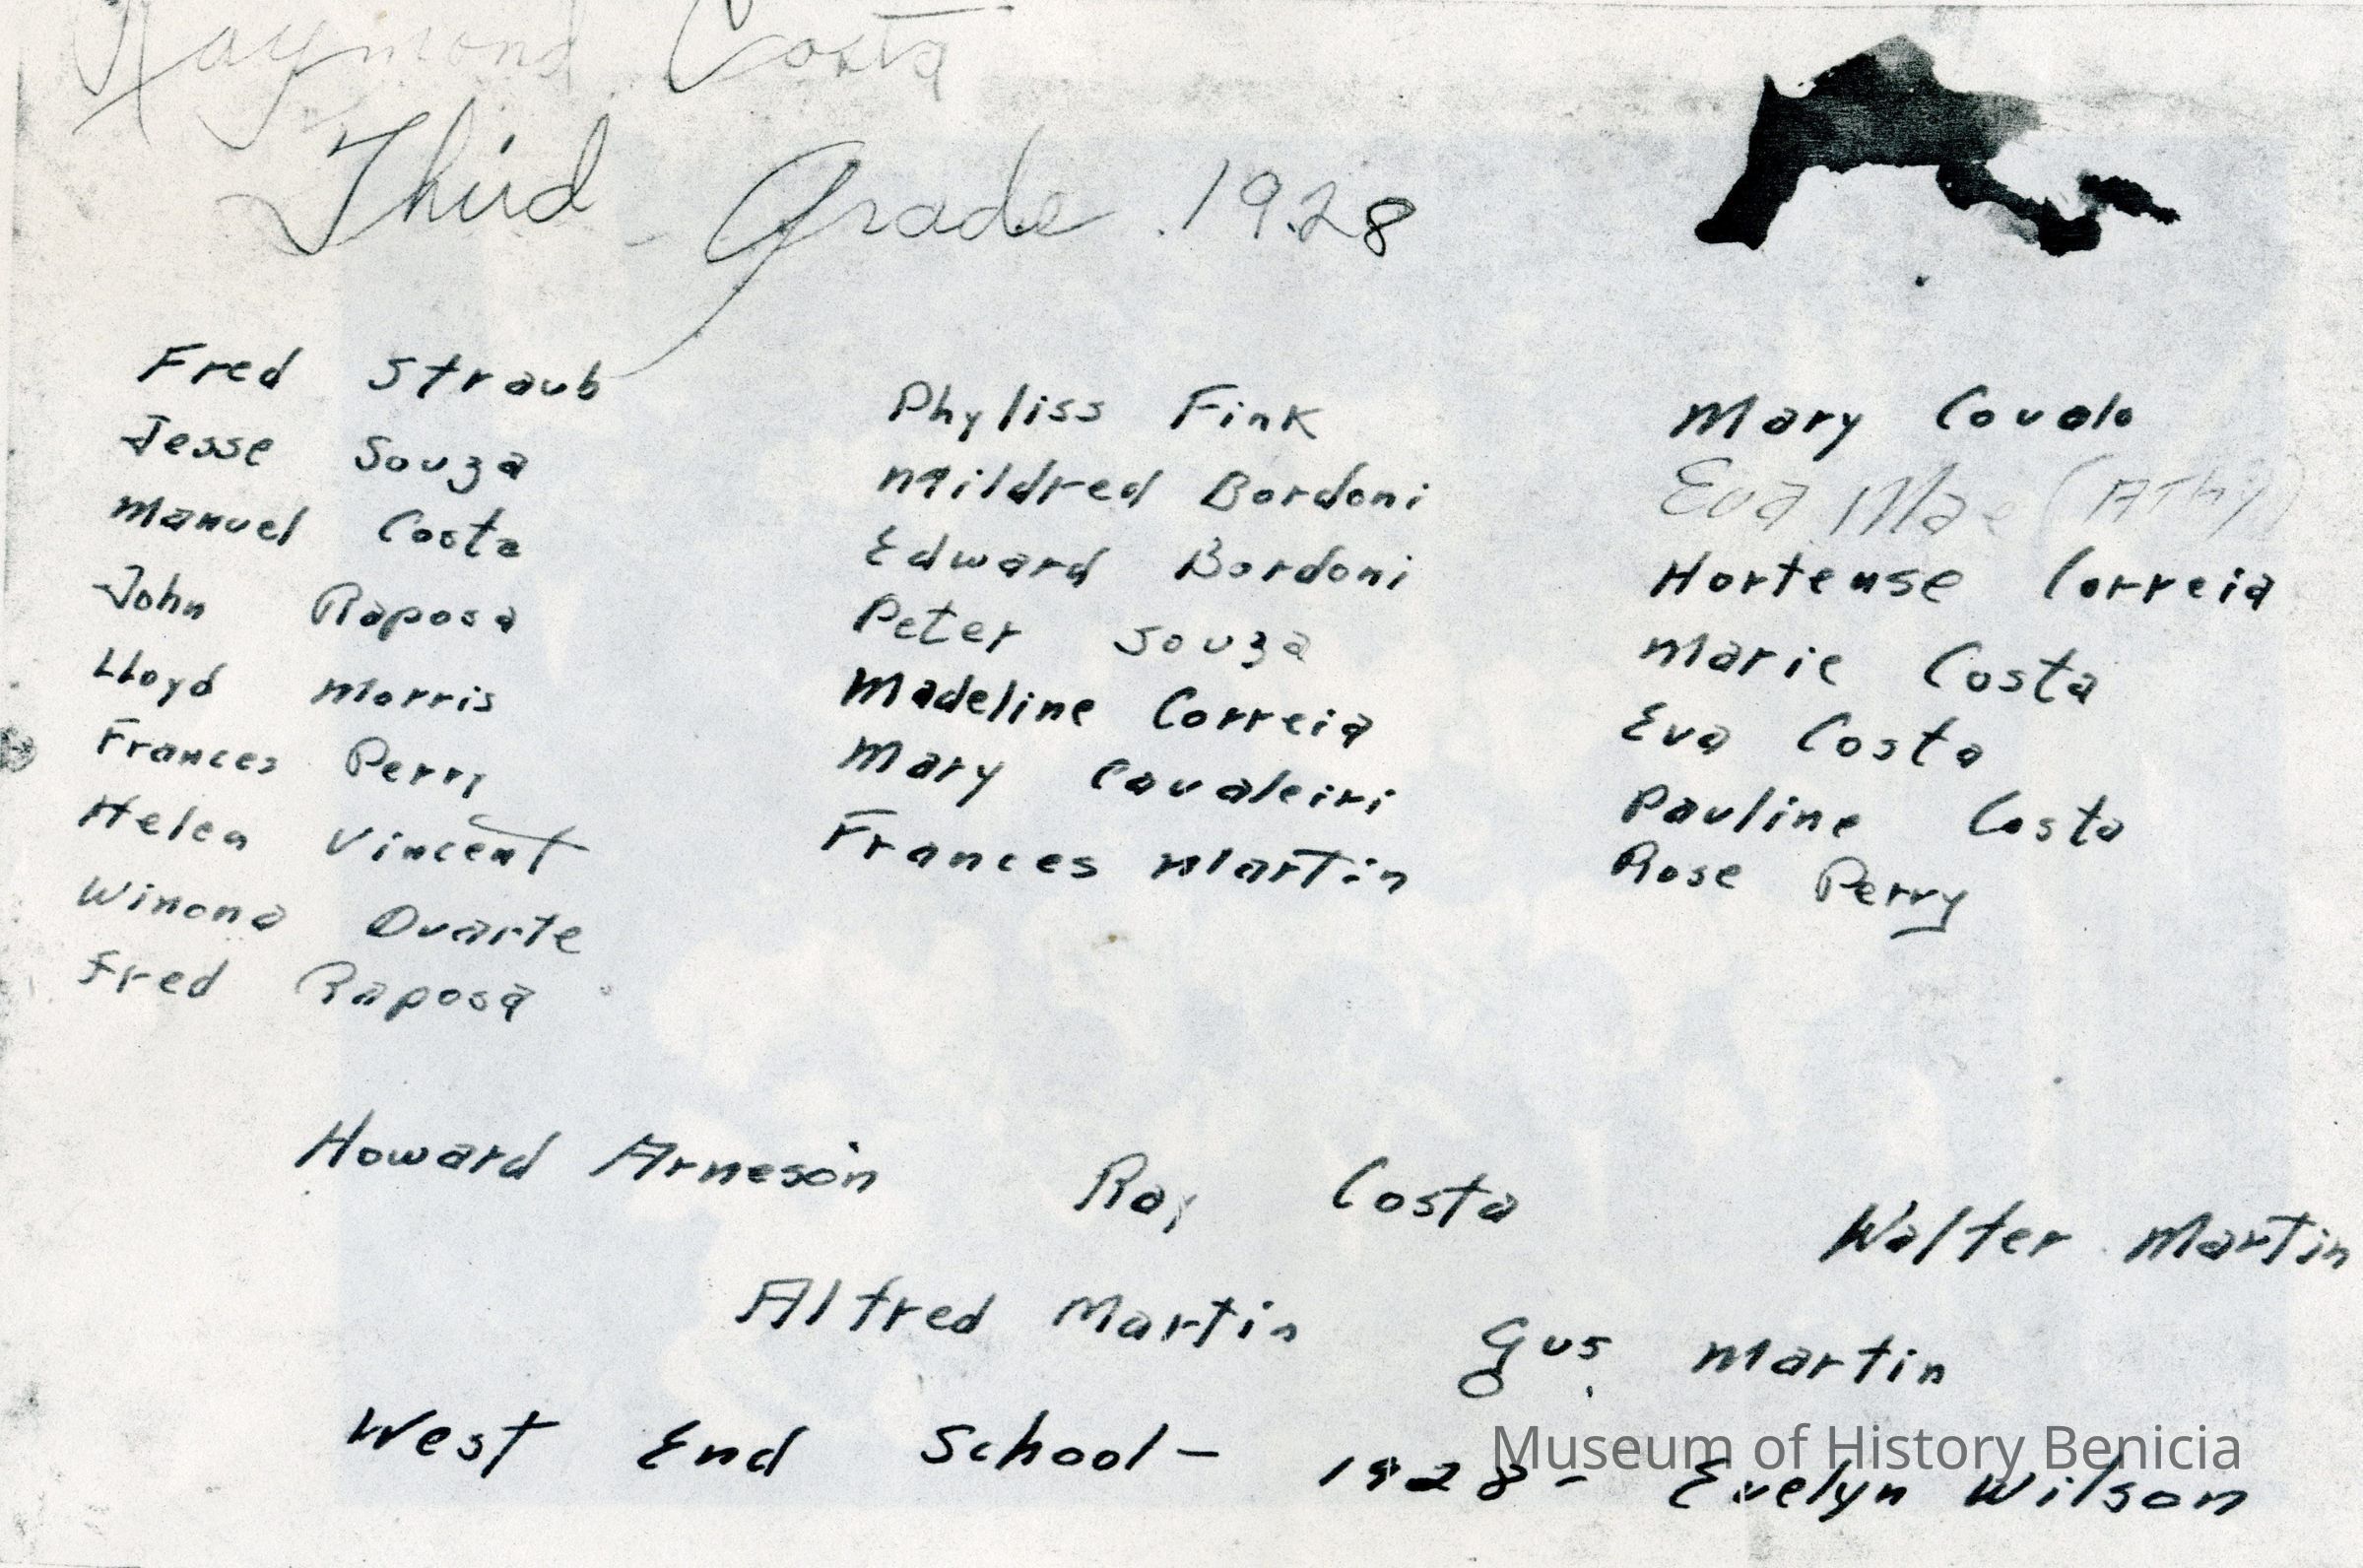 Raymond Costa
Third Grade 1928
Fred Straub
Jesse Souza
Manuel Costa
John Raposa
Lloyd Morris
Frances Perry
Helen Vincent
Winona Duarte
Fred Raposa
Phyliss Fink
Mildred Bordoni
Edward Bordoni
Peter Souza
Madeline Correia
Mary Cavaleiri
Frances Martin
Mary Covolo
Eva Mae (Athy)
Hortense Correia
Marie Costa
Eva Costa
Pauline Costa
Rose Perry
Howard Arneson Ray Costa Walter Martin
Alfred Martin Gus Martin
West End School - 1928 - Evelyn Wilson
Museum of History Benicia